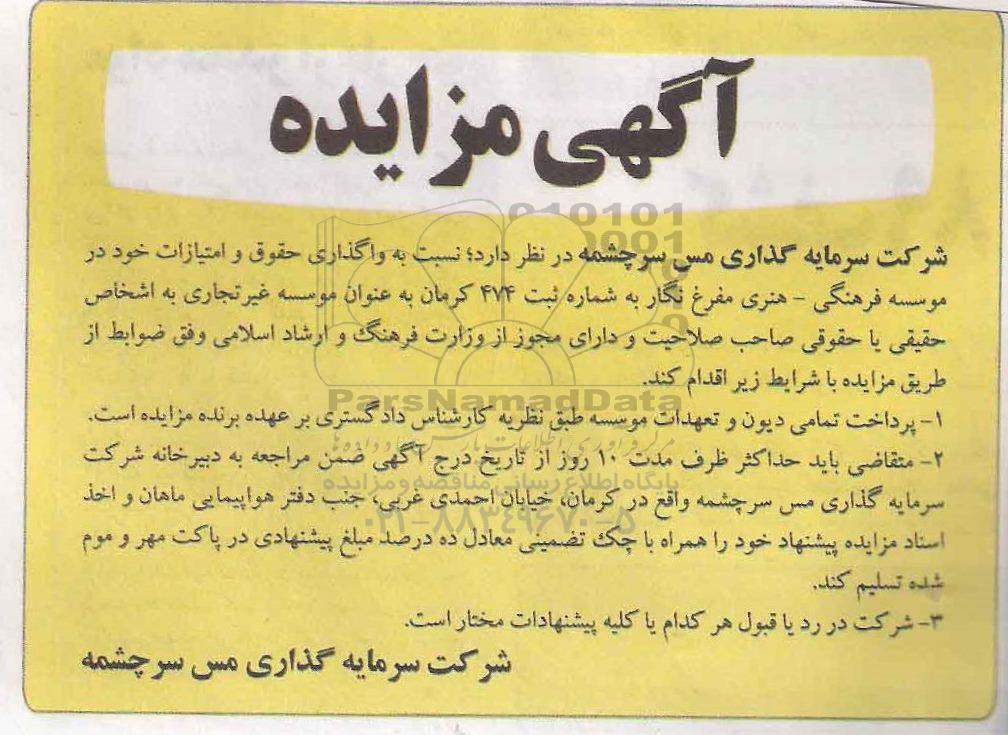 آگهی مزایده
شرکت سرمایه گذاری مس سرچشمه در نظر دارد؛ نسبت به واگذاری حقوق و امتیازات خود در
موسسه فرهنگی - هنری مفرغ نگار به شماره ثبت ۴۷۴ کرمان به عنوان موسسه غیرتجاری به اشخاص
حقیقی یا حقوقی صاحب صلاحیت و دارای مجوز از وزارت فرهنگ و ارشاد اسلامی وفق ضوابط از
طریق مزایده با شرایط زیر اقدام کند.
۱- پرداخت تمامی دیون و تعهدات موسسه طبق نظریه کارشناس دادگستری بر عهده برنده مزایده است.
۲- متقاضی باید حداکثر ظرف مدت ۱۰ روز از تاریخ درج آگهی ضمن مراجعه به دبیرخانه شرکت
سرمایه گذاری مس سرچشمه واقع در کرمان، خیابان احمدی غربی، جنب دفتر هواپیمایی ماهان و اخذ
اسناد مزایده پیشنهاد خود را همراه با چک تضمینی معادل ده درصد مبلغ پیشنهادی در پاکت مهر و موم
شده تسلیم کند.
۳- شرکت در رد یا قبول هر کدام یا کلیه پیشنهادات مختار است.
شرکت سرمایه گذاری مس سرچشمه
010101
0001
ParsNamadData
پایگاه اطلاع رسانی مناقصه و مزایده
۰۲۱-۸۸۳۴۹۶۷۰-۵